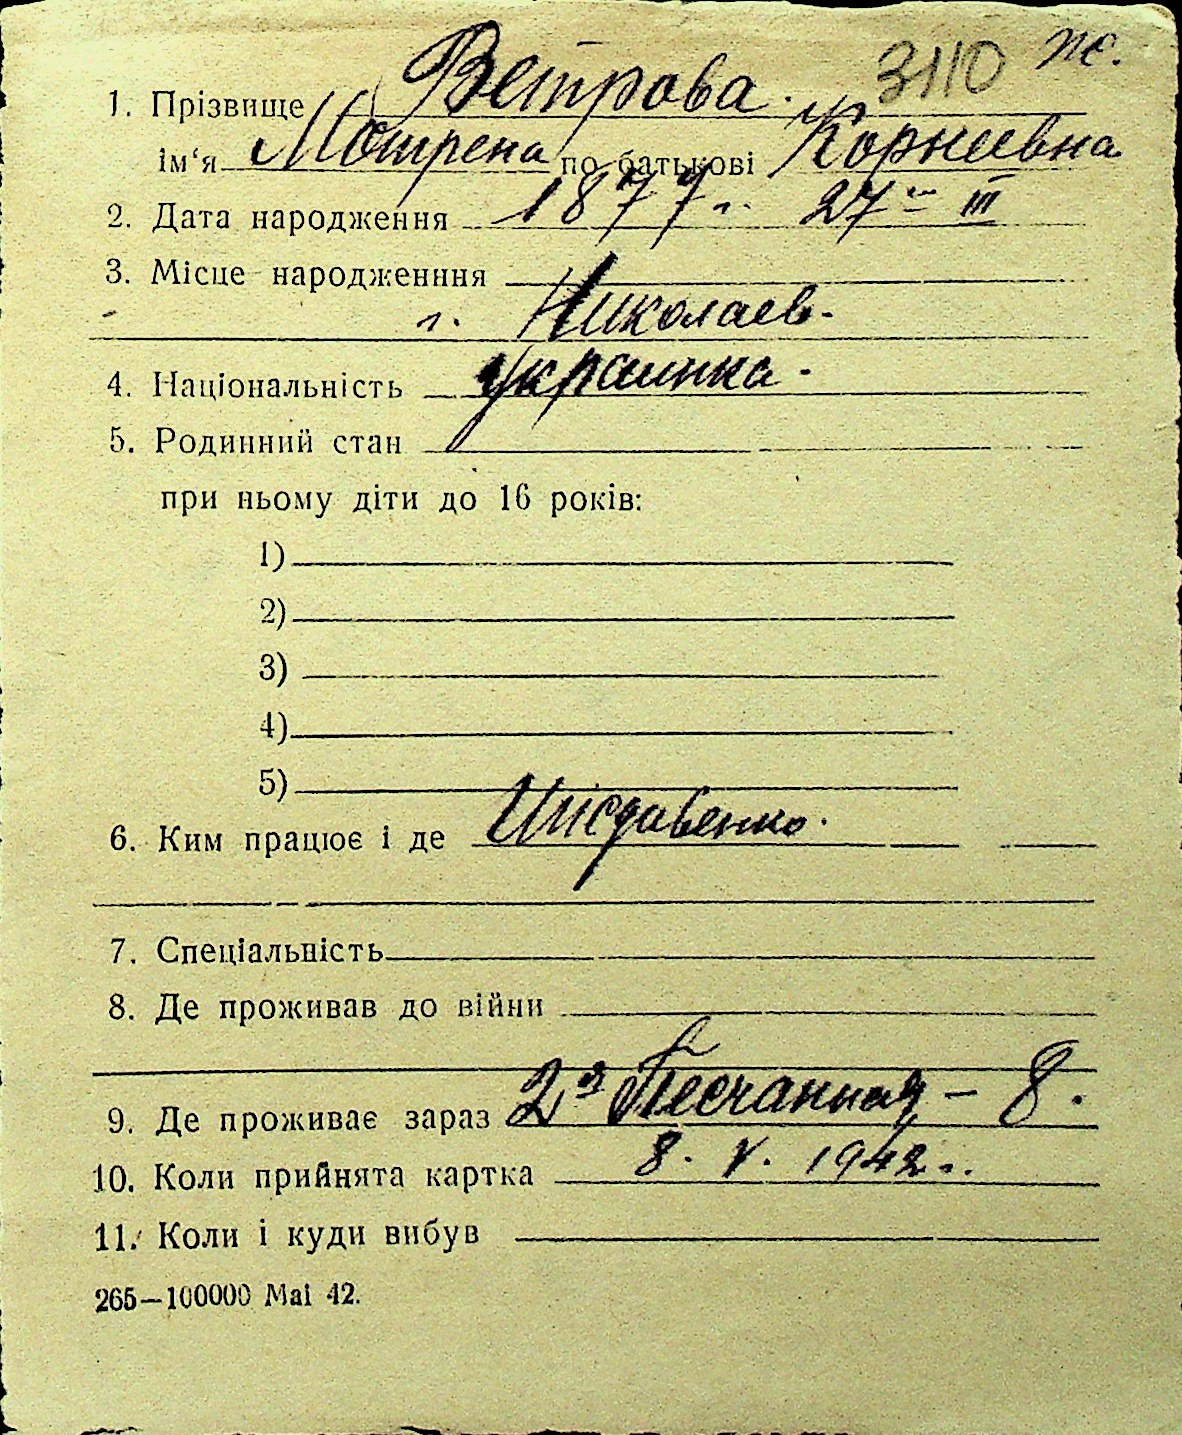 3110 ж.
1. Прізвище Ветрова.
ім'я Мотрена по батькові Корнеевна
2. Дата народження 1877 г. 27 III
3. Місце народженння
г. Николаев.
4. Національність украинка.
5. Родинний стан
при ньому діти до 16 років:
1)
2)
3)
4)
5)
6. Ким працює і де Иждивенко.
7. Спеціальність
8. Де проживав до війни
9. Де проживає зараз 2я Песчанная – 8.
10. Коли прийнята картка 8. V. 1942 г.
11. Коли і куди вибув
265—100000 Mai 42.